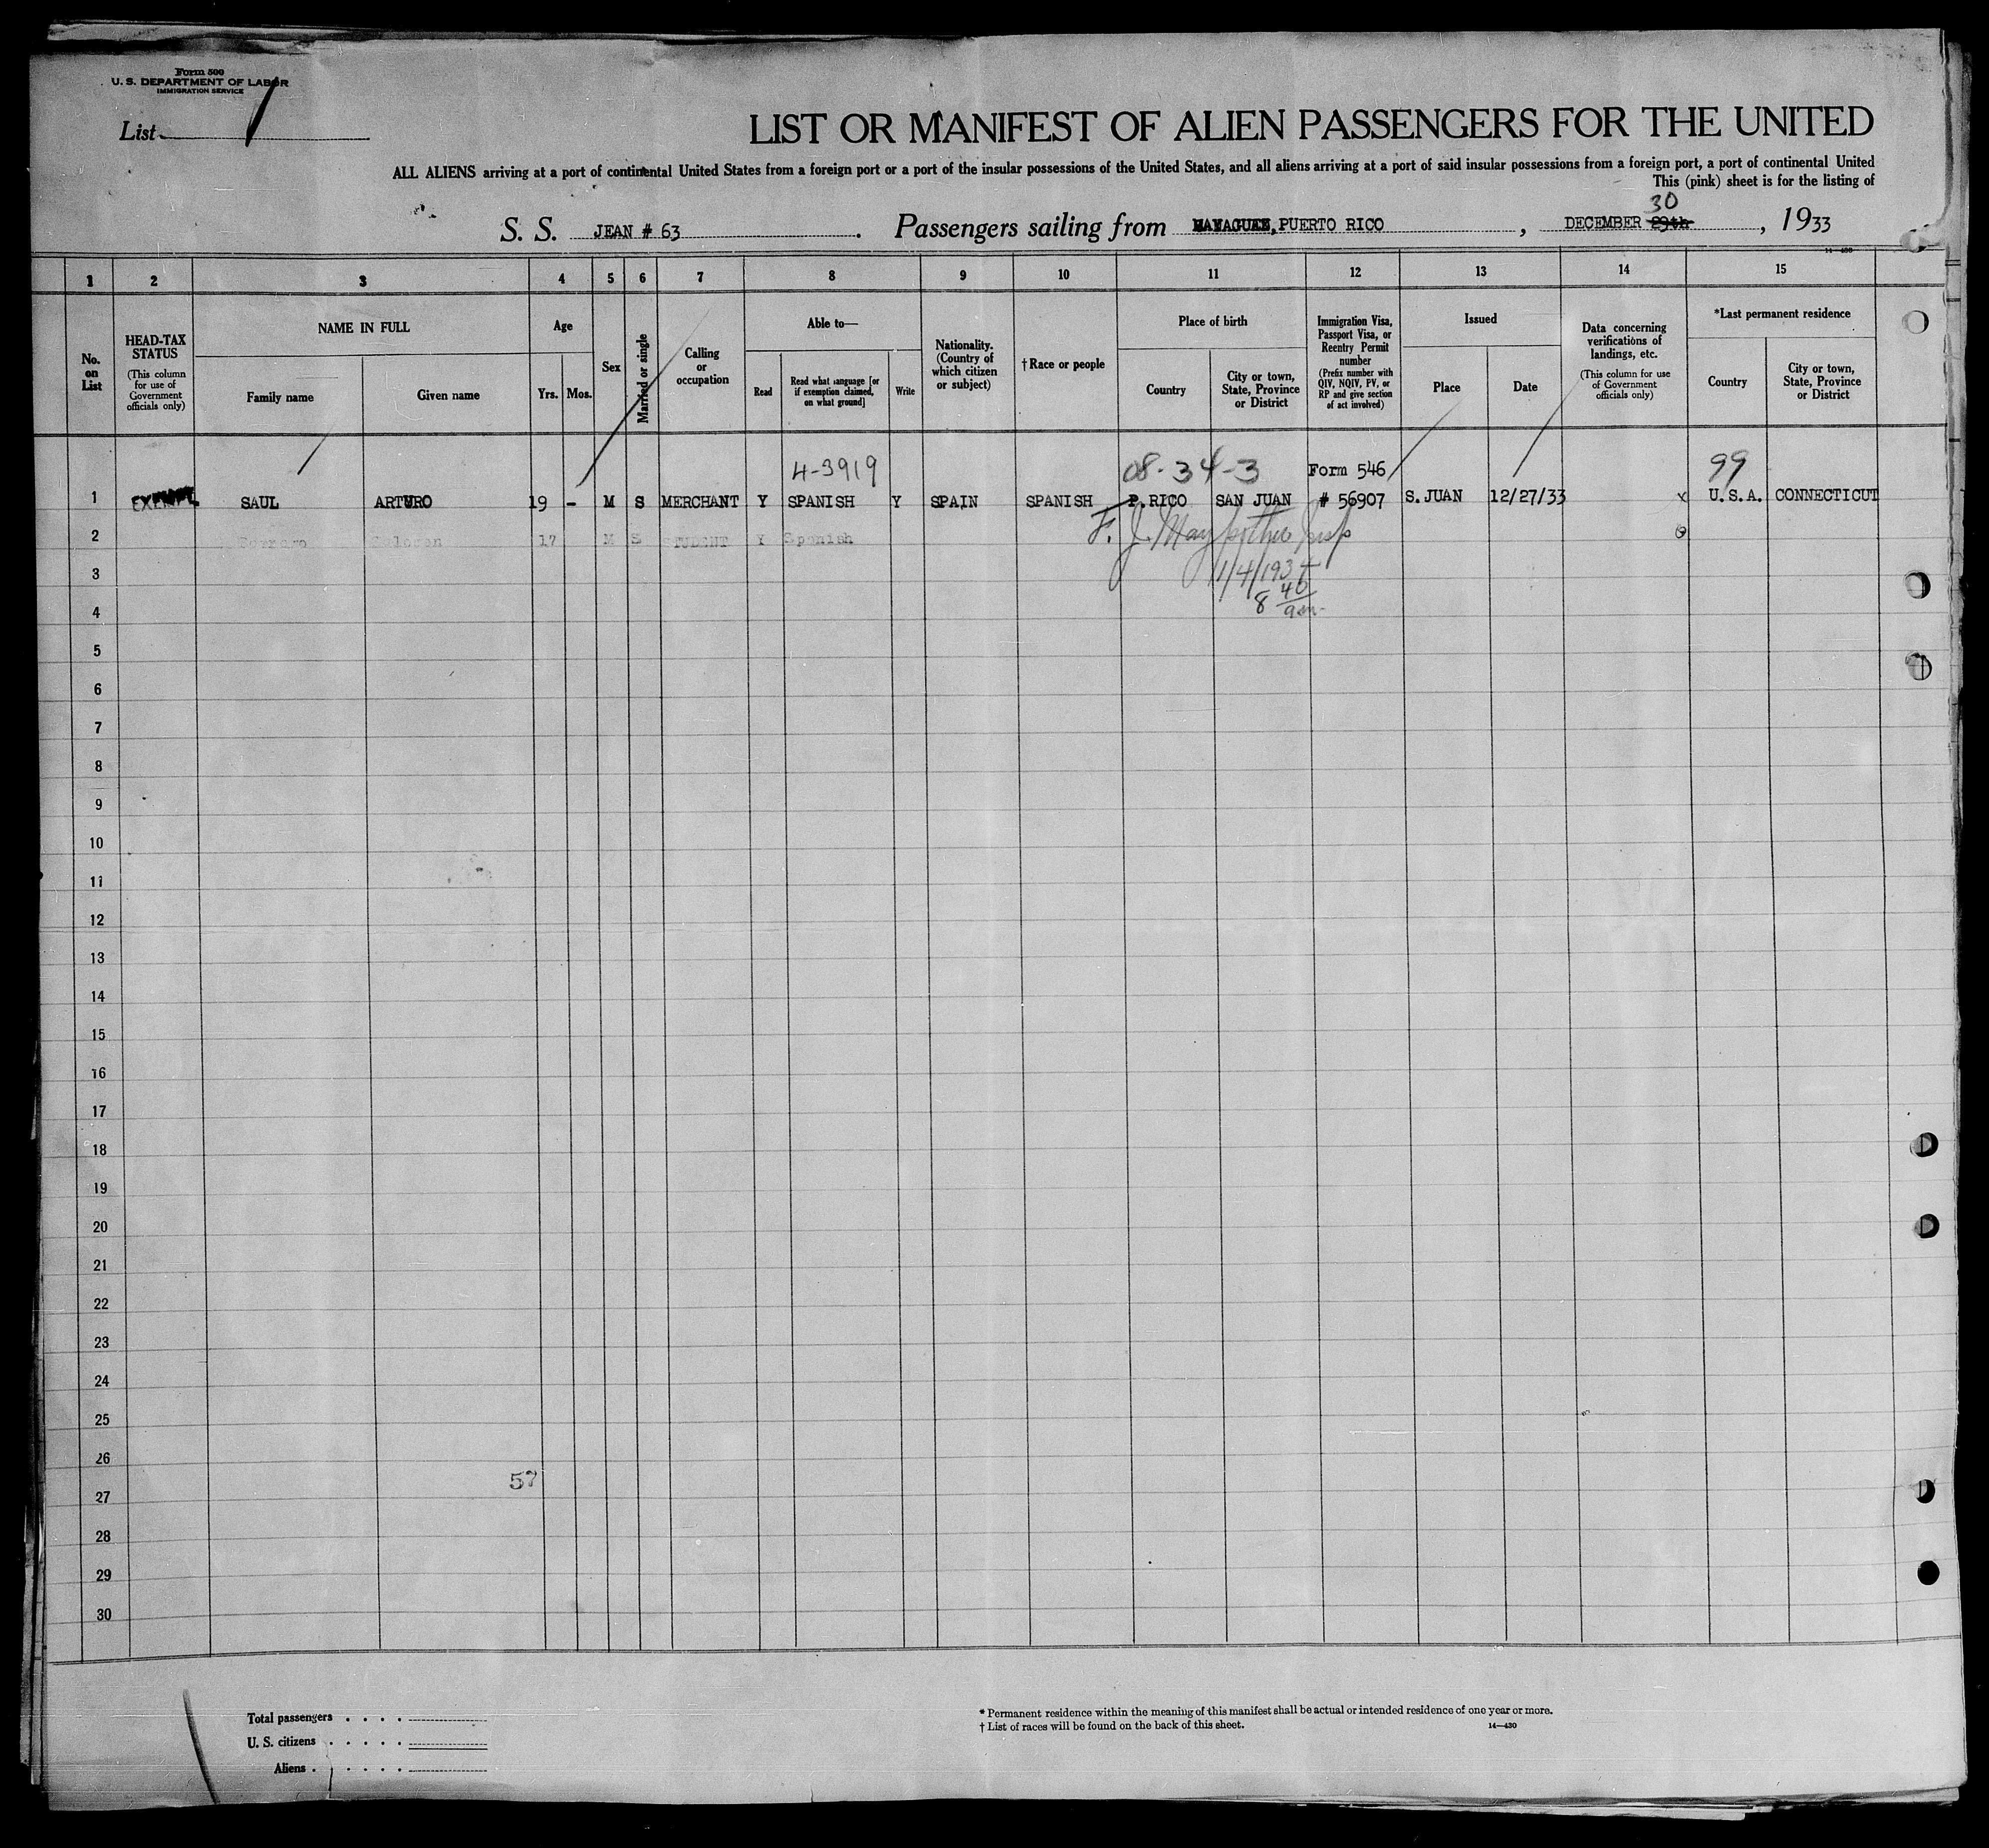 Form 500
U. S. DEPARTMENT OF LABOR
IMMIGRATION SERVICE
List 1
LIST OR MANIFEST OF ALIEN PASSENGERS FOR THE UNITED
ALL ALIENS arriving at a port of continental United States from a foreign port or a port of the insular possessions of the United States, and all aliens arriving at a port of said insular possessions from a foreign port, a port of continental United
This (pink) sheet is for the listing of
30
S. S. JEAN # 63. Passengers sailing from PUERTO RICO, DECEMBER 29th, 1933
14-430
1 2 3 4 5 6 7 8 9 10 11 12 13 14 15
No. on List
HEAD-TAX STATUS
(This column for use of Government officials only)
NAME IN FULL
Family name
Given name
Age
Yrs. Mos.
Sex
Married or single
Calling or occupation
Able to—
Read
Read what language [or if exemption claimed, on what ground]
Write
Nationality. (Country of which citizen or subject)
†Race or people
Place of birth
Country
City or town, State, Province or District
Immigration Visa, Passport Visa, or Reentry Permit number
(Prefix number with QIV, NQIV, PV, or RP and give section of act involved)
Issued
Place
Date
Data concerning verifications of landings, etc.
(This column for use of Government officials only)
*Last permanent residence
Country
City or town, State, Province or District
4-3919 08-34-3 Form 546 99
1 EXEMPT SAUL ARTURO 19 - M S MERCHANT Y SPANISH Y SPAIN SPANISH P.RICO SAN JUAN # 56907 S.JUAN 12/27/33 x U.S.A. CONNECTICUT
2 17 M S STUDENT Y Spanish F. J.
3 1/4/1934
8 40
4 am
5
6
7
8
9
10
11
12
13
14
15
16
17
18
19
20
21
22
23
24
25
26
57
27
28
29
30
Total passengers . . . .
U. S. citizens . . . . .
Aliens . . . . .
* Permanent residence within the meaning of this manifest shall be actual or intended residence of one year or more.
† List of races will be found on the back of this sheet. 14—430